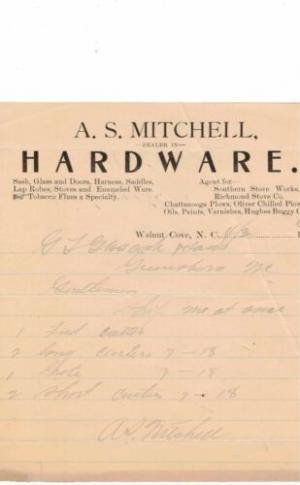 A. S. MITCHELL,
—DEALER IN—
HARDWARE.
Sash, Glass and Doors, Harness, Saddles,
Lap Robes, Stoves and Enameled Ware.
Tobacco Flues a Specialty.
Agent for
Southern Stove Works,
Richmond Stove Co.
Chattanooga Plows, Oliver Chilled Plow
Oils, Paints, Varnishes, Hughes Buggy
Walnut Cove, N. C.
Greensboro NC
Gentlemen
me at once
1 Feed cutter
2 long 7-18
1 7-18
2 short 7-18
A. S. Mitchell.